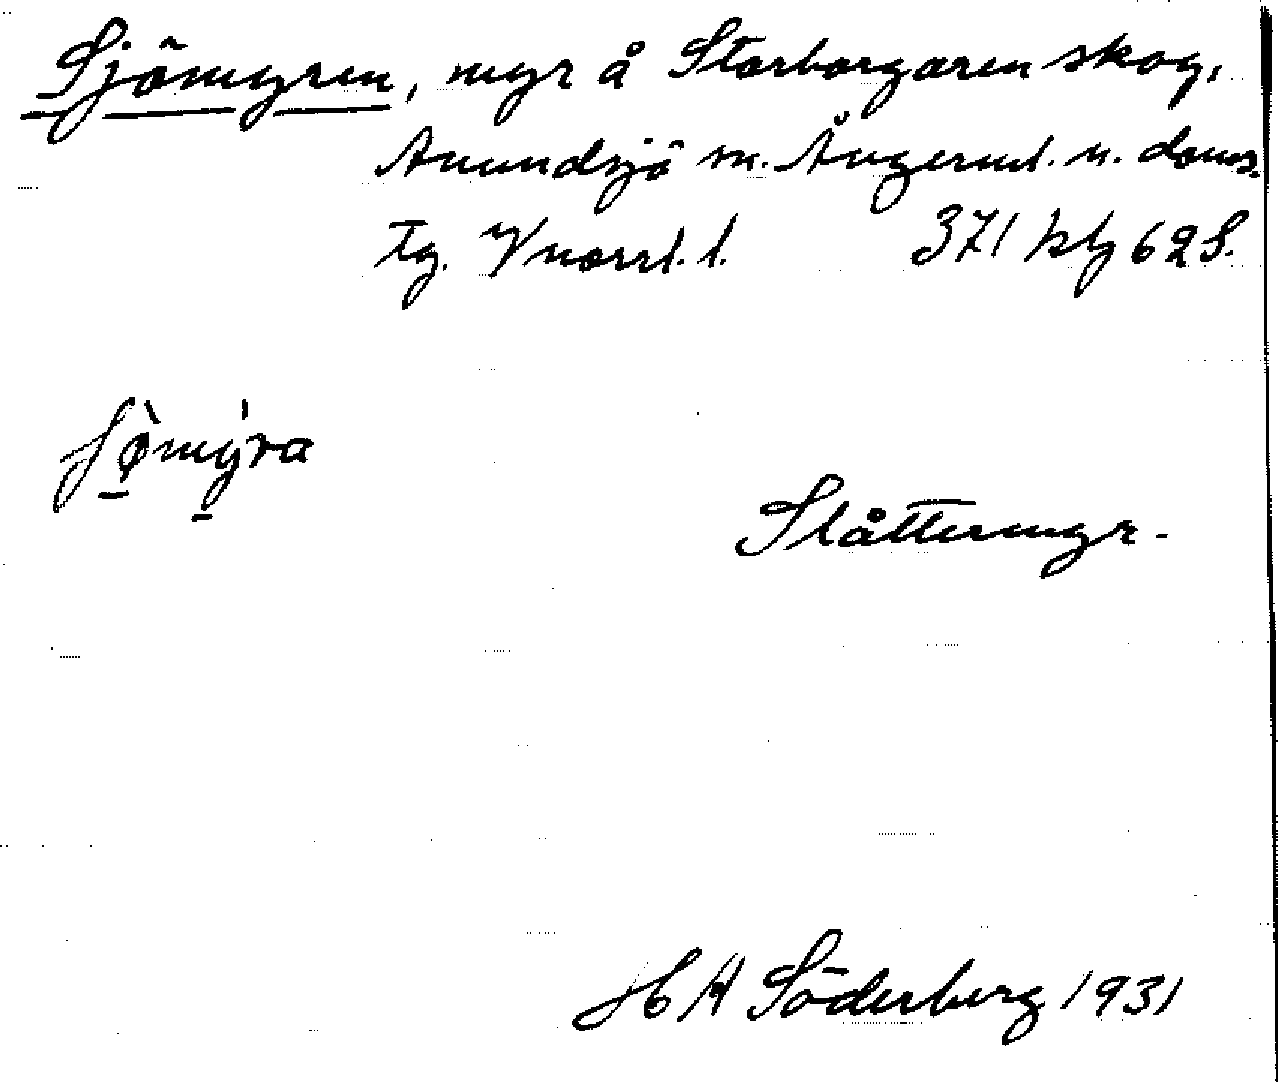 Sjömyren, myr å Storborgaren skog,
Anundsjö sn. Ångerml. n. doms.
tg. Vnorrl. l. 371 kbg 62 S.
ʃø̀mýra
Slåttermyr.
H A Söderberg 1931